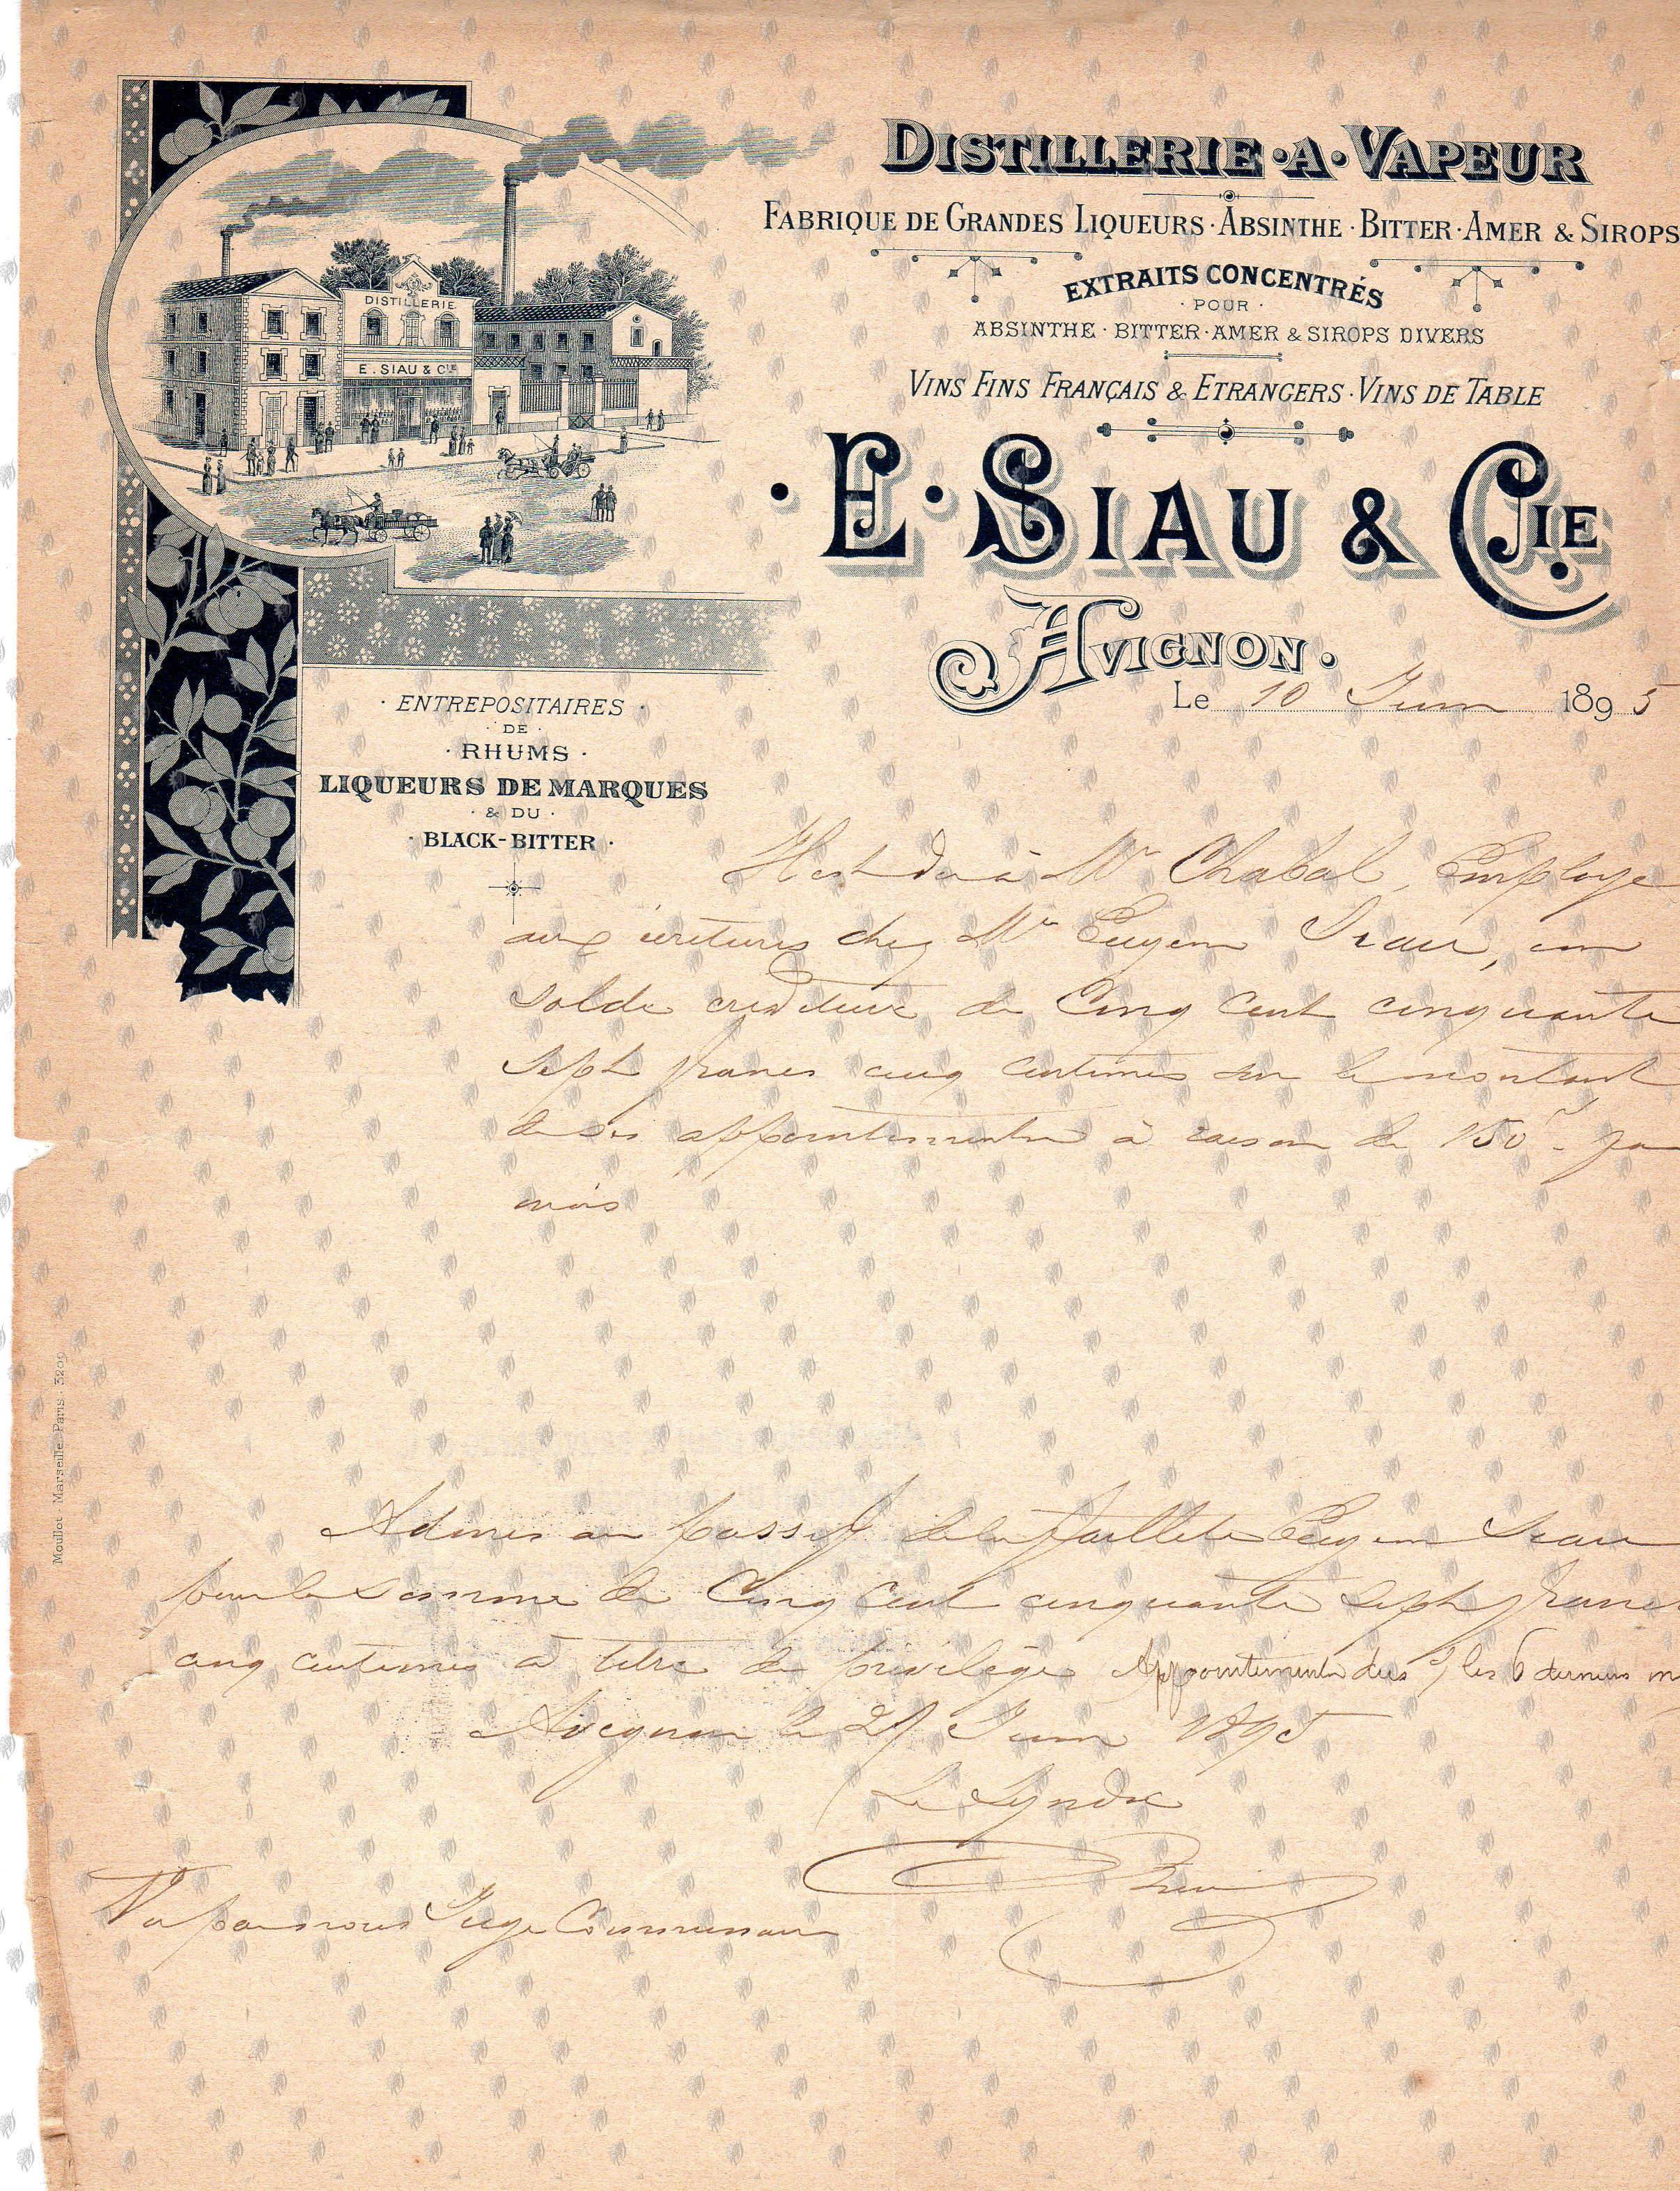 DISTILLERIE • A • VAPEUR
FABRIQUE DE GRANDES LIQUEURS · ABSINTHE · BITTER · AMER & SIROPS
EXTRAITS CONCENTRÉS
· POUR ·
ABSINTHE · BITTER · AMER & SIROPS DIVERS
VINS FINS FRANÇAIS & ETRANGERS · VINS DE TABLE
· E · SIAU & CIE
AVIGNON.
Le 10 Juin 1895
DISTILLERIE
E. SIAU & CIE
· ENTREPOSITAIRES ·
· DE ·
· RHUMS ·
LIQUEURS DE MARQUES
· & DU ·
· BLACK-BITTER ·
Il est dû à Mr Chabal, Employé
aux écritures chez Mr Eugène Siau, un
solde créditeur de Cinq Cent cinquante
sept francs cinq centimes sur le montant
de ses appointements à raison de 150f par
mois
Admis au passif de la faillite Eugène Siau
pour la somme de Cinq Cent cinquante sept francs
cinq centimes à titre de privilège Appointements dus les 6 derniers
Avignon le Juin 1895
Le Syndic
Vu par nous Juge Commissaire
Mouillot - Marseille - Paris - 3209